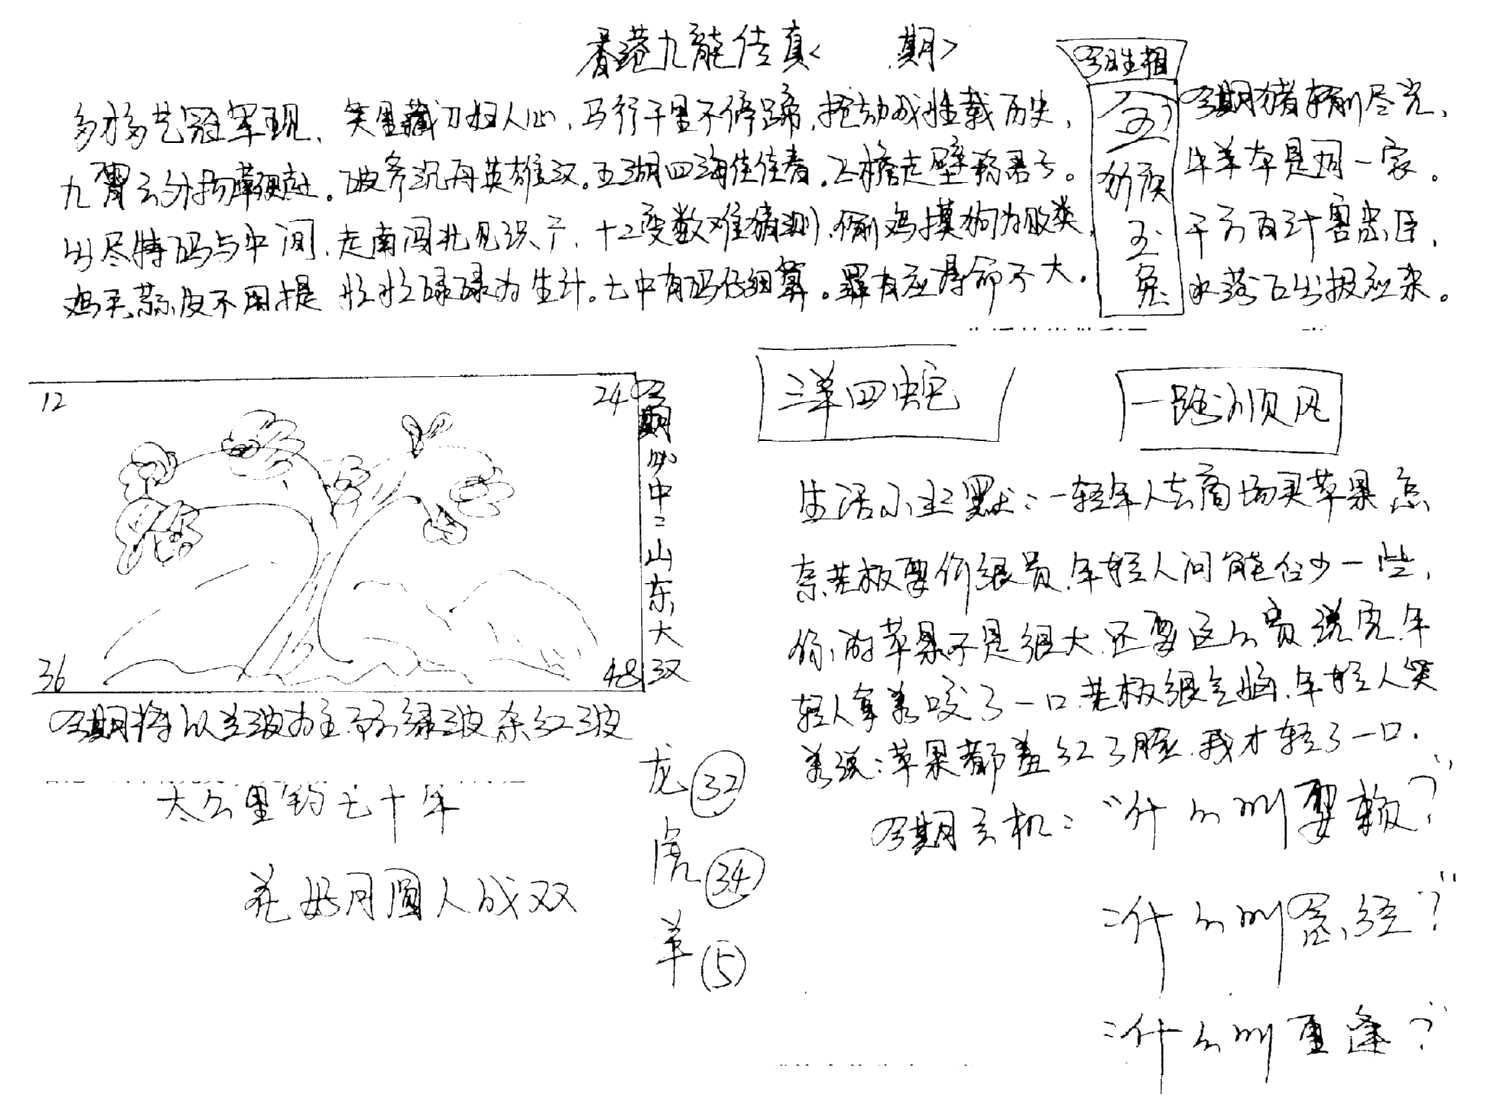 香港九龍传真<　　期>
今期生相
多才多艺冠军现、笑里藏刀妇人心、马行千里不停蹄、拴动成性载历史、
九霄云外扬朝廷。破斧沉舟英雄汉。五湖四海佳佳春。飞檐走壁称君子。
出尽特码与中间、走南闯北见识广、十二变数难猜测、偷鸡摸狗为败类、
鸡毛蒜皮不用提 忙忙碌碌为生计。七中有码仔细算。罪有应得命不大。
金
五
犲狼
玉
兔
今期猪轉剧尽光、
牛羊本是同一家。
千方百计害忠臣、
水落石出报应来。
12 24
36 48
今期必中:山东大汉
今期特以兰波为主、防绿波杂红波
太公里钓七十年
花好月圆人成双
龙 32
虎 34
羊 5
三羊四兔
一路顺风
生活小幽默:一轻年人去商场买苹果怎
奈老板要价很贵、年轻人问能公少一些、
你的苹果不是很大、还要这么贵、说完、年
轻人拿着咬了一口、老板很气恼、年轻人笑
着说:苹果都羞红了脸、我才轻了一口.
今期玄机:"什么叫耍赖?"
:什么叫念经?"
:什么叫重逢?